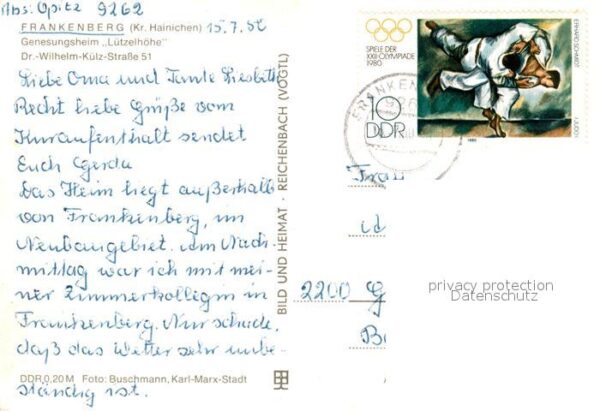 Abs: Opitz 9262
FRANKENBERG (Kr. Hainichen) 15.7.80
Genesungsheim „Lützelhöhe"
Dr.-Wilhelm-Külz-Straße 51
Liebe Oma und Tante Liesbeth
Recht liebe Grüße vom
Kuraufenthalt sendet
Euch Gerda
Das Heim liegt außerhalb
von Frankenberg, im
Neubaugebiet. Am Nach-
mittag war ich mit mei-
ner Zimmerkollegin in
Frankenberg. Nur schade,
daß das Wetter sehr unbe-
DDR 0,20 M Foto: Buschmann, Karl-Marx-Stadt
ständig ist.
BILD UND HEIMAT · REICHENBACH (VOGTL)
SPIELE DER
XXII. OLYMPIADE
1980
10
DDR
ERHARD SCHMIDT
JUDO
1980
FRANKEN
926
Frau
2200 G
privacy protection
Datenschutz